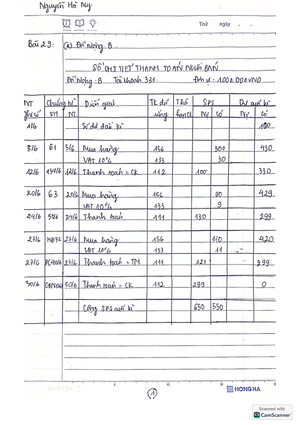 Nguyễn Hà My
Thứ ngày
Bài 29: (a) Đối tượng B.
SỔ CHI TIẾT THANH TOÁN NGƯỜI BÁN
Đối tượng: B Tài khoản 331. Đơn vị: 1.000.000 VND
NT ghi sổ Chứng từ Diễn giải Tk đối ứng Thời hạn CK SPS Dư cuối kì
SH NT Nợ Có Nợ Có
1/6 Số dư đầu kì 100
5/6 61 5/6 Mua hàng 156 300 430
VAT 10% 133 30
12/6 12/6 Thanh toán = CK 112 100 330
20/6 63 20/6 Mua hàng 156 90 429
VAT 10% 133 9
24/6 24/6 Thanh toán 151 130 299
27/6 27/6 Mua hàng 156 110 420
VAT 10% 133 11
27/6 27/6 Thanh toán = TM 111 121 299
30/6 30/6 Thanh toán = CK 112 299 0
Cộng SPS cuối kì 650 550
1
HONG HA
Scanned with
CS CamScanner